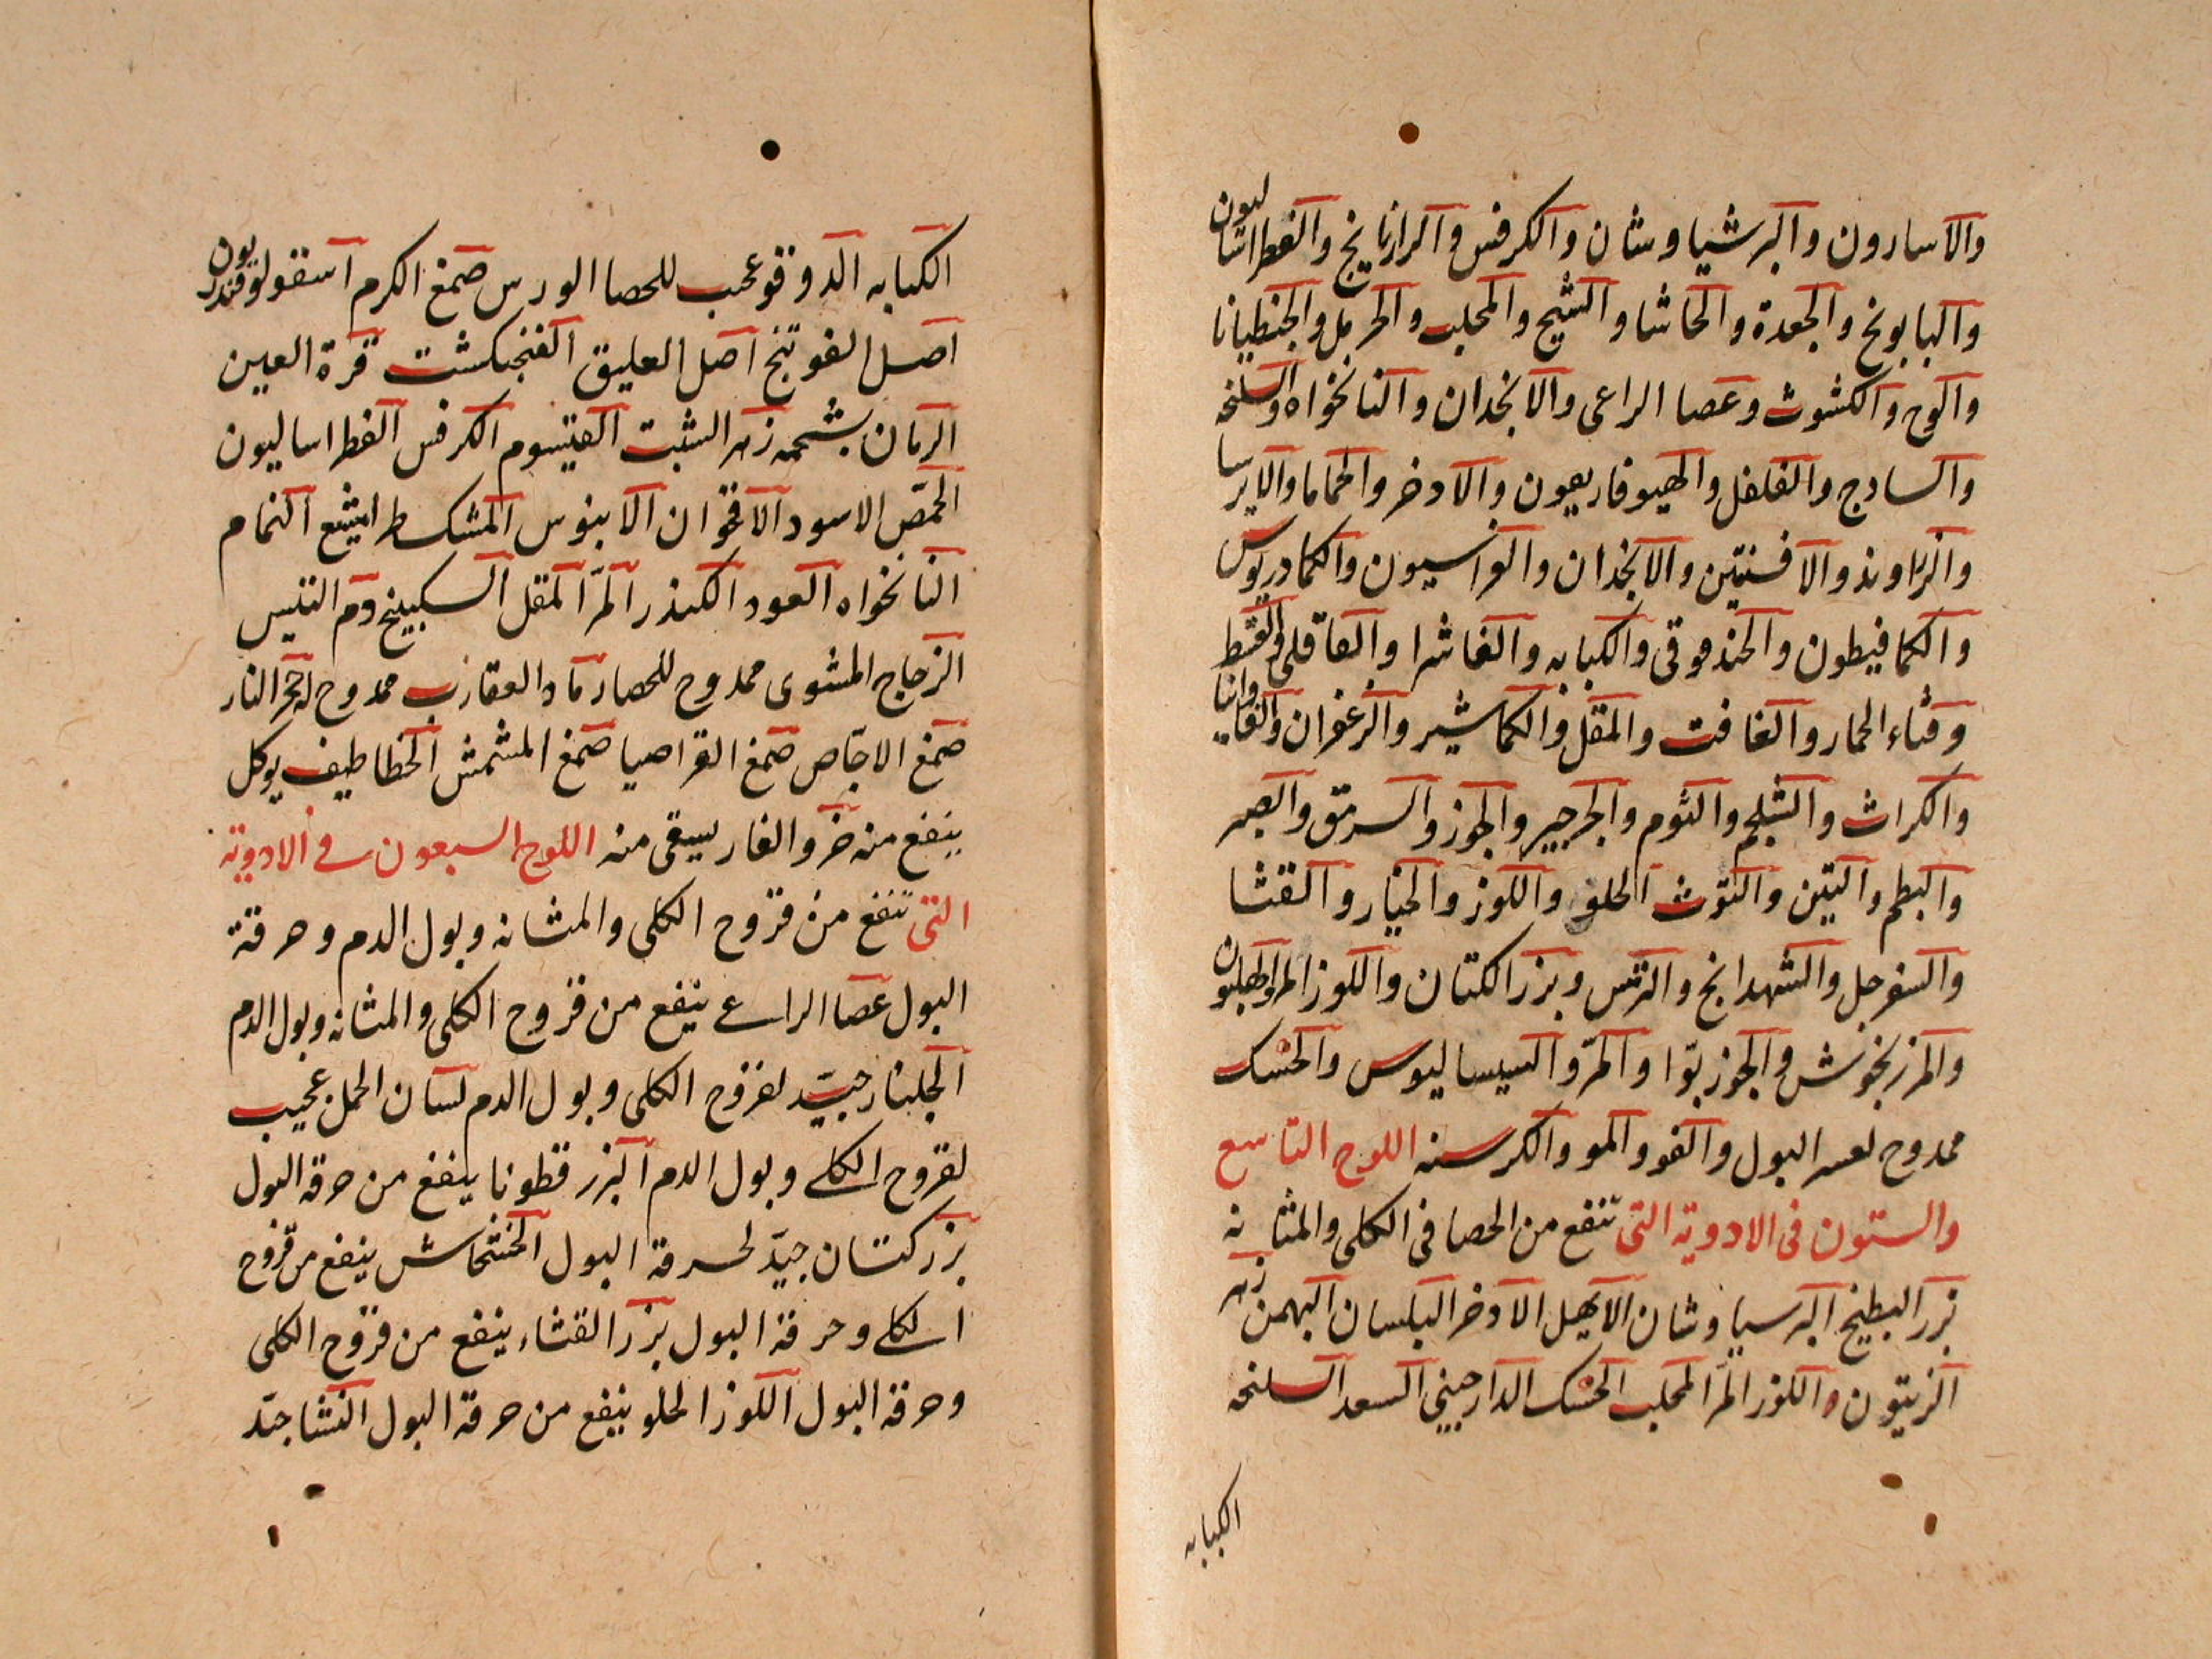 والاسارون والبرشياوشان والكرفس والرازيانج والفطراساليون
والبابونج والجعدة والحاشا والشيح والمحلب والحرمل والجنطيانا
والوج والكشوث وعصا الراعى والانجدان والنانخواه والسلنحه
والسادج والفلفل والهيوفاريعون والادخر والحماما والايرسا
والزراوند والافسنتين والانجدان والفراسيون والكمادريوس
والكمافيطون والحندقوقى والكبابه والفاشرا والقاقلى والقسط
وقثاء الحمار والغافت والمقل والكماشير والزعفران والفاوانيا
والكراث والشلجم والثوم والجرجير والجوز والسرمق والبصر
والبطم والتين والتوث الحلو واللوز والخيار والقثا
والسفرجل والشهدانج والترمس وبزر الكتان واللوز المر والهليون
والمرزنجوش والجوزبوا والمر والسيساليوس والحسك
ممدوح لعسر البول والفو والمو والكرسنه اللوح التاسع
والستون فى الادوية التى تنفع من الحصا فى الكلى والمثانه
بزر البطيخ البرسياوشان الابهل الادخر البلسان البهمن زهر
الزيتون واللوز المر المحلب الحسك الدارجينى السعد السلنحه
الكبابه
الكبابه الدوقو عجب للحصا الورس صمغ الكرم اسقولوقندريون
اصل الفوتنج اصل العليق الفنجنكشت قرة العين
الرمان بشحمه زهر الشبت القيسوم الكرفس الفطراساليون
الحمص الاسود الاقحوان الابنوس المشكطرامشيع النمام
النانخواه العود الكندر المر المقل السكبينج دم التيس
الزجاج المشوى ممدوح للحصا رماد العقارب ممدوح له حجر النار
صمغ الاجاص صمغ القراصيا صمغ المشمش الخطاطيف يوكل
ينفع منه خرو الفار يسقى منه اللوح السبعون فى الادوية
التى تنفع من قروح الكلى والمثانه وبول الدم وحرقة
البول عصا الراعى ينفع من قروح الكلى والمثانه وبول الدم
الجلنار جيد لقروح الكلى وبول الدم لسان الحمل عجيب
لقروح الكلى وبول الدم البزر قطونا ينفع من حرقة البول
بزر كتان جيد لحرقة البول الخشخاش ينفع من قروح
الكلى وحرقة البول بزر القثاء ينفع من قروح الكلى
وحرقة البول اللوز الحلو ينفع من حرقة البول النشا جيد